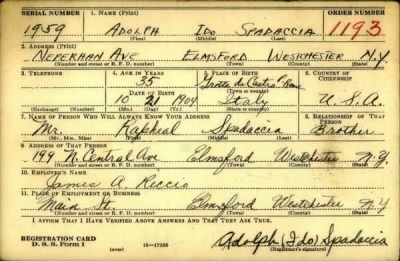 SERIAL NUMBER 1. NAME (Print) ORDER NUMBER
1959 ADOLPH IDO SPADACCIA 1193
(First) (Middle) (Last)
2. ADDRESS (Print)
NEPERHAN AVE ELMSFORD WESTCHESTER N.Y.
(Number and street or R. F. D. number) (Town) (County) (State)
3. TELEPHONE 4. AGE IN YEARS 5. PLACE OF BIRTH 6. COUNTRY OF CITIZENSHIP
35 Grotte de Castro
DATE OF BIRTH (Town or county)
10 21 1904 Italy U.S.A.
(Exchange) (Number) (Mo.) (Day) (Yr.) (State or country)
7. NAME OF PERSON WHO WILL ALWAYS KNOW YOUR ADDRESS 8. RELATIONSHIP OF THAT PERSON
Mr. Rapheal Spadaccia Brother
(Mr., Mrs., Miss) (First) (Middle) (Last)
9. ADDRESS OF THAT PERSON
199 N. Central Ave Elmsford Westchester N.Y.
(Number and street or R. F. D. number) (Town) (County) (State)
10. EMPLOYER'S NAME
James A. Riccio
11. PLACE OF EMPLOYMENT OR BUSINESS
Main St. Elmsford Westchester N.Y
(Number and street or R. F. D. number) (Town) (County) (State)
I AFFIRM THAT I HAVE VERIFIED ABOVE ANSWERS AND THAT THEY ARE TRUE.
REGISTRATION CARD
D. S. S. Form 1 (over) 16—17105 Adolph (Ido) Spadaccia
(Registrant's signature)